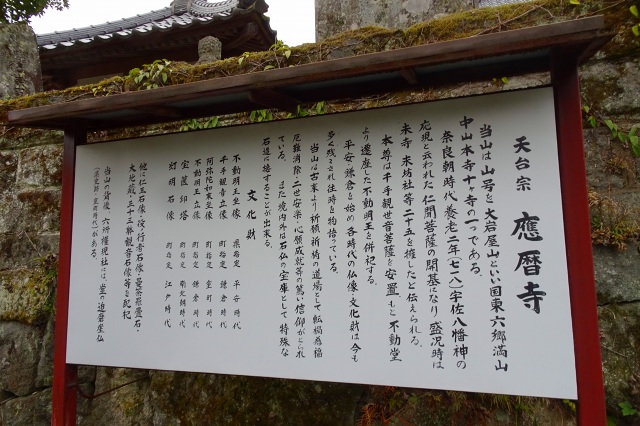 天台宗 應暦寺
当山は山号を大岩屋山といい国東六郷満山
中山本寺十ヶ寺の一つである。
奈良朝時代養老二年(七一八)宇佐八幡神の
応現と云われた仁聞菩薩の開基になり盛況時は
末寺末坊社等二十五を擁したと伝えられる。
本尊は千手観世音菩薩を安置もと不動堂
より遷座した不動明王を併祀する。
平安鎌倉を始め各時代の仏像文化財は今も
多く残され往時を物語っている。
当山は古来より祈願祈祷の道場として転禍為福
厄難消除二世安楽心願成就等の篤い信仰がとられ
ている。また境内外は石仏の宝庫として特殊な
石造に接することが出来る。
文化財
不動明王坐像 県指定 平安時代
千手観音立像 町指定 鎌倉時代
不動明王立像 町指定 鎌倉時代
阿弥陀如来坐像 町指定 室町時代
不動明王立像 町指定 鎌倉時代
宝篋印塔 町指定 南北朝時代
灯明石像 町指定 江戸時代
他に仁王石像・役ノ行者石像・
大地蔵・三十三躰観音石像等を配祀
当山の背後六所権現社には、堂の迫磨崖仏
(県史跡・室町時代)がある。